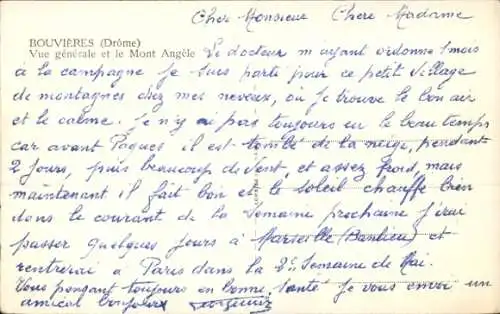 Cher Monsieur Chere Madame
BOUVIÈRES (Drôme)
Vue générale et le Mont Angèle
Le docteur m'ayant ordonné 1 mois
à la campagne je suis parti pour ce petit village
de montagnes chez mes neveux, où je trouve le bon air
et le calme. Je n'y ai pas toujours eu le beau temps
car avant Paques il est tombé de la neige, pendant
2 jours, puis beaucoup de vent, et assez froid, mais
maintenant il fait bon et le soleil chauffe bien
dans le courant de la semaine prochaine j'irai
passer quelques jours à Marseille (Banlieue) et
rentrerai à Paris dans la 2e semaine de Mai.
Vous pensant toujours en bonne santé je vous envoi un
amical bonjour